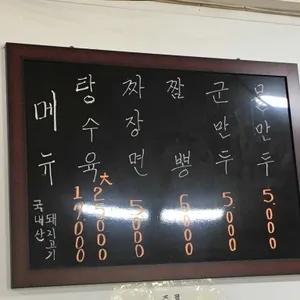 메뉴
탕수육
大
25000
17000
국내산
돼지고기
짜장면
5000
짬뽕
6000
군만두
5.000
물만두
5.000